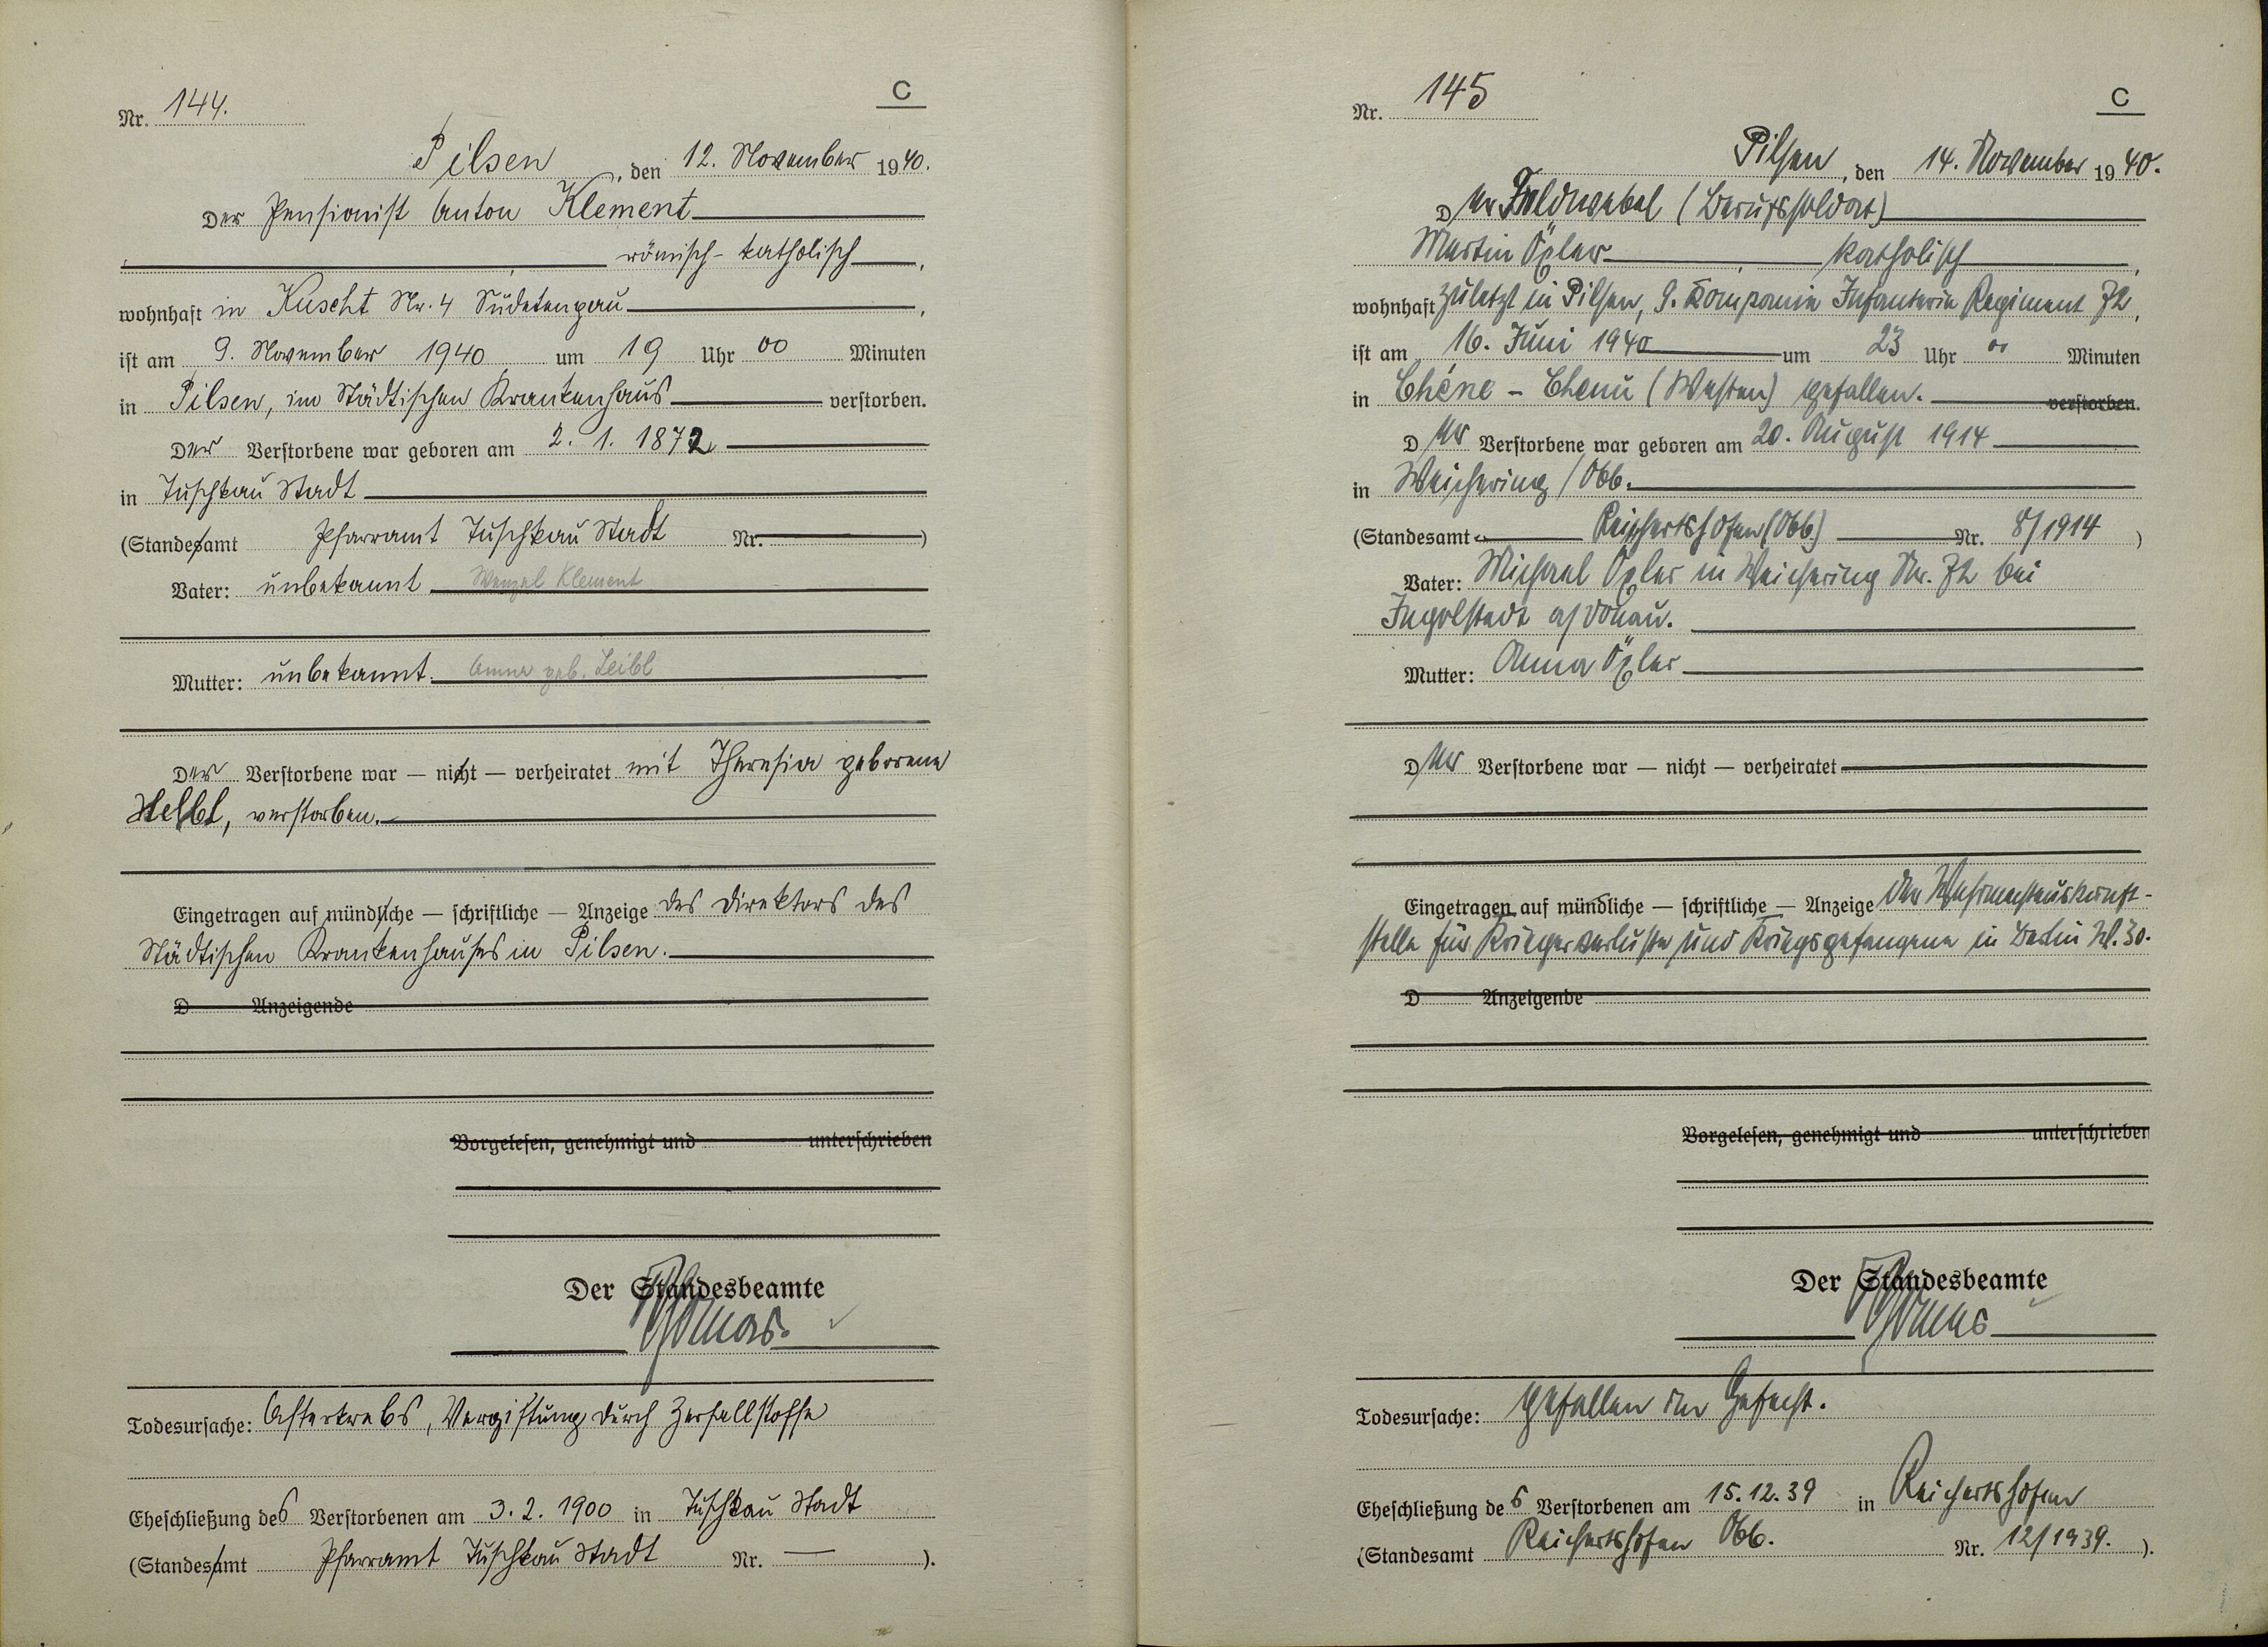 C
Nr. 144.
Pilsen, den 12. November 1940.
Der Pensionist Anton Klement
römisch-katholisch,
wohnhaft in Kuscht Nr. 4 Sudetengau,
ist am 9. November 1940 um 19 Uhr 00 Minuten
in Pilsen, im Städtischen Krankenhaus verstorben.
Der Verstorbene war geboren am 2. 1. 1872
in Tuschkau Stadt
(Standesamt Pfarramt Tuschkau Stadt Nr. )
Vater: unbekannt Wenzel Klement
Mutter: unbekannt. Anna geb. Leibl
Der Verstorbene war — nicht — verheiratet mit Theresia geborene
verstorben.
Eingetragen auf mündliche — schriftliche — Anzeige des Direktors des
Städtischen Krankenhauses in Pilsen.
D Anzeigende
Vorgelesen, genehmigt und unterschrieben
Der Standesbeamte
Todesursache: Afterkrebs, Vergiftung durch Zerfallstoffe
Eheschließung des Verstorbenen am 3. 2. 1900 in Tuschkau Stadt
(Standesamt Pfarramt Tuschkau Stadt Nr. — ).
C
Nr. 145
Pilsen, den 14. November 1940.
Der Feldwebel (Berufssoldat)
Martin Öxler, katholisch,
wohnhaft zuletzt in Pilsen, 9. Kompanie Infanterie Regiment 72,
ist am 16. Juni 1940 um 23 Uhr 00 Minuten
in Chéne - Chenu (Westen) gefallen. verstorben.
Der Verstorbene war geboren am 20. August 1914
in Weichering / Obb.
(Standesamt Reichertshofen (Obb) Nr. 8/1914 )
Vater: Michael Öxler in Weichering Nr. 72 bei
Ingolstadt a/Donau.
Mutter: Anna Öxler
Der Verstorbene war — nicht — verheiratet
Eingetragen auf mündliche — schriftliche — Anzeige der Wehrmachtauskunft-
stelle für Kriegerverluste und Kriegsgefangene in Berlin W. 30.
D Anzeigende
Vorgelesen, genehmigt und unterschrieben
Der Standesbeamte
Todesursache: Gefallen im Gefecht.
Eheschließung des Verstorbenen am 15.12.39 in Reichertshofen
(Standesamt Reichertshofen Obb. Nr. 12/1939. ).